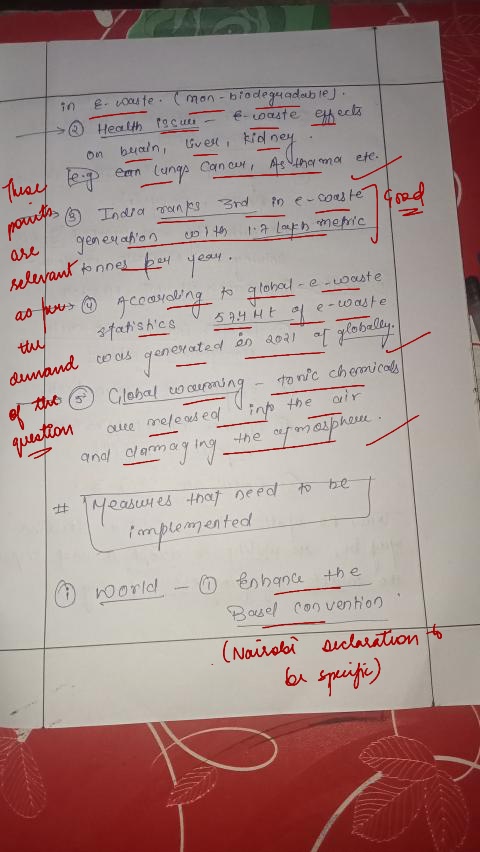 in E-waste. (non-biodegradable).
→ ② Health issues - E-waste effects
on brain, liver, kidney.
e.g. can lungs cancer, Asthama etc.
③ India ranks 3rd in e-waste
generation with 1.7 lakh metric
tonnes per year.
Good
④ According to global-e-waste
statistics 57.4 Mt of e-waste
was generated in 2021 globally.
⑤ Global warming - toxic chemicals
are released into the air
and damaging the atmosphere.
These
points
are
relevant
as per
the
demand
of the
question
# Measures that need to be
implemented
ⓘ World - ① Enhance the
Basel convention.
(Nairobi Declaration to
be specific)